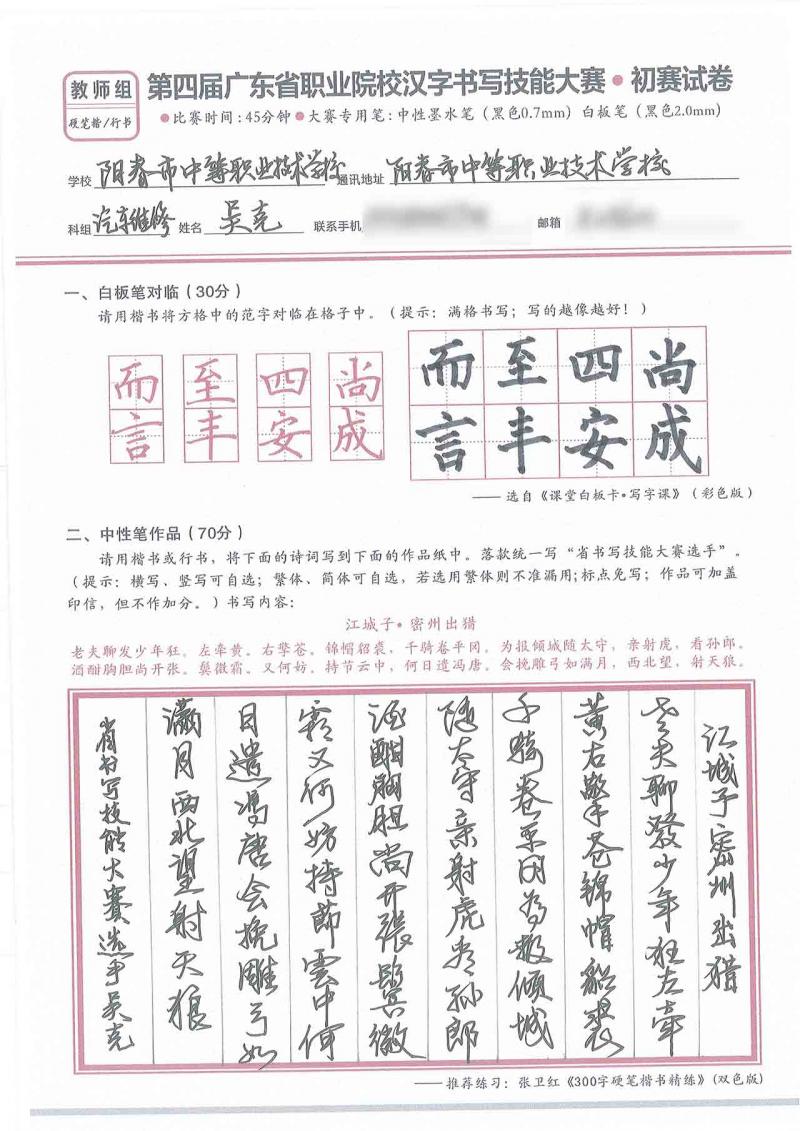 教师组
硬笔楷/行书
第四届广东省职业院校汉字书写技能大赛·初赛试卷
●比赛时间:45分钟●大赛专用笔:中性墨水笔(黑色0.7mm)白板笔(黑色2.0mm)
学校 阳春市中等职业技术学校 通讯地址 阳春市中等职业技术学校
科组 汽车维修 姓名 吴克 联系手机 邮箱
一、白板笔对临(30分)
请用楷书将方格中的范字对临在格子中。(提示:满格书写;写的越像越好!)
而至四尚 而至四尚
言丰安成 言丰安成
——选自《课堂白板卡·写字课》(彩色版)
二、中性笔作品(70分)
请用楷书或行书,将下面的诗词写到下面的作品纸中。落款统一写“省书写技能大赛选手”。
(提示:横写、竖写可自选;繁体、简体可自选,若选用繁体则不准漏用;标点免写;作品可加盖
印信,但不作加分。)书写内容:
江城子·密州出猎
老夫聊发少年狂。左牵黄。右擎苍。锦帽貂裘,千骑卷平冈。为报倾城随太守,亲射虎,看孙郎。
酒酣胸胆尚开张。鬓微霜。又何妨。持节云中,何日遣冯唐。会挽雕弓如满月,西北望,射天狼。
江城子密州出猎
老夫聊發少年狂左牽
黄右擎苍锦帽貂裘
千骑卷平冈为报倾城
随太守亲射虎看孙郎
酒酣胸胆尚开張鬓微
霜又何妨持節雲中何
日遣馮唐会挽雕弓如
满月西北望射天狼
省书写技能大賽选手吴克
——推荐练习:张卫红《300字硬笔楷书精练》(双色版)